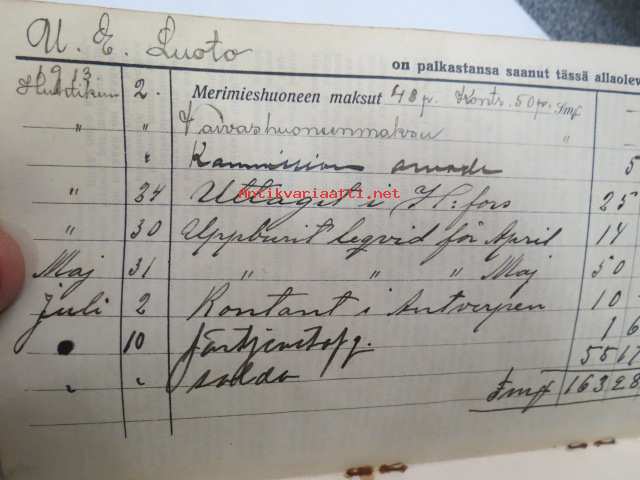 U. E. Luoto
on palkastansa saanut tässä allaolev
1913
Huhtikuu 2. Merimieshuoneen maksut 48 p. Kontr. 50 p. Smf —
" " —
" 5
" 24 Uttaget i H:fors 25
" 30 Uppburit leqvid för April 14
Maj 31 " " " Maj 50
Juli 2 Kontant i Antverpen 10 -
" 10 1 6
" " saldo 5517
Fmf 16328
Antikvariaatti.net